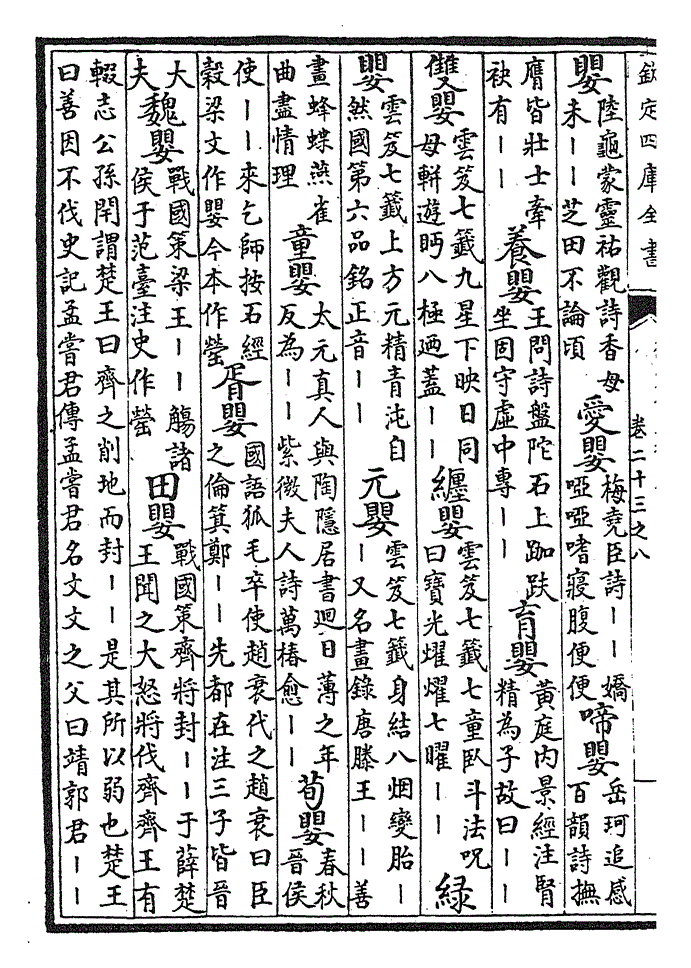 欽定四庫全書
卷二十三之八
嬰
陸龜蒙靈祐觀詩香母
未丨丨芝田不論頃
愛嬰
梅堯臣詩丨丨嬌
啞啞嗜寢腹便便
啼嬰
岳珂追感
百韻詩撫
膺皆壯士牽
袂有丨丨
養嬰
王問詩盤陀石上跏趺
坐固守虛中專丨丨
育嬰
黃庭内景經注腎
精為子故曰丨丨
雙嬰
雲笈七籤九星下映日同
母軿遊眄八極廻蓋丨丨
纏嬰
雲笈七籤七童臥斗法呪
曰寶光燿燿七曜丨丨
緑
嬰
雲笈七籤上方元精青沌自
然國第六品銘正音丨丨
元嬰
雲笈七籤身結八烟變胎丨
丨又名畫錄唐滕王丨丨善
畫蜂蝶燕雀
曲盡情理
童嬰
太元真人與陶隱居書廻日薄之年
反為丨丨紫微夫人詩萬椿愈丨丨
荀嬰
春秋
晉侯
使丨丨來乞師按石經
穀梁文作嬰今本作罃
胥嬰
國語狐毛卒使趙衰代之趙衰曰臣
之倫箕鄭丨丨先都在注三子皆晉
大
夫
魏嬰
戰國策梁王丨丨觴諸
侯于范臺注史作罃
田嬰
戰國策齊將封丨丨于薛楚
王聞之大怒將伐齊齊王有
輟志公孫閈謂楚王曰齊之削地而封丨丨是其所以弱也楚王
曰善因不伐史記孟嘗君傳孟嘗君名文文之父曰靖郭君丨丨